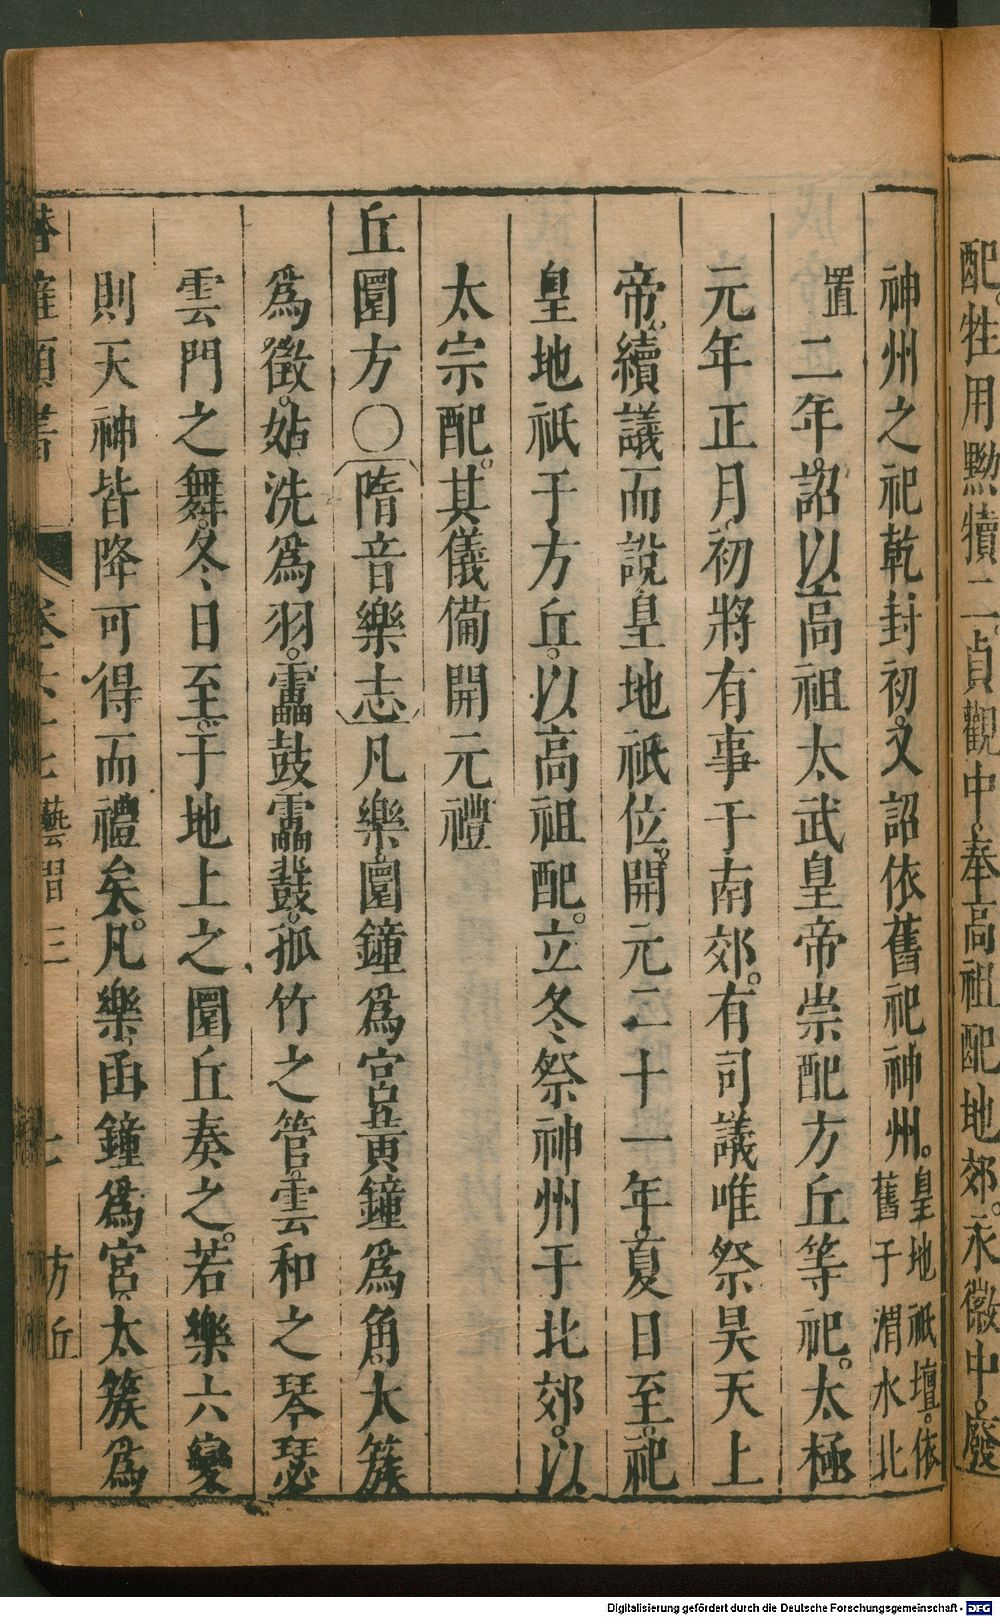 配。牲用黝犢二。貞觀中。奉高祖配地郊。永徽中。廢
神州之祀乾封初。又詔依舊祀神州。皇地祇壇。依舊于渭水北
置二年。詔以高祖太武皇帝崇配方丘等祀。太極
元年正月。初將有事于南郊。有司議唯祭昊天上
帝。續議而說皇地祇位。開元二十一年。夏日至。祀
皇地祇于方丘。以高祖配。立冬祭神州于北郊。以
太宗配。其儀備開元禮
丘圜方〇隋音樂志凡樂圜鐘爲宮。黃鐘爲角。太簇
爲徵。姑洗爲羽。靁鼓靁鼗。孤竹之管。雲和之琴瑟
雲門之舞。冬日至。于地上之圜丘奏之。若樂六變
則天神皆降可得而禮矣。凡樂。函鐘爲宮。太簇爲
藝習三
七
方丘
Digitalisierung gefördert durch die Deutsche Forschungsgemeinschaft - DFG